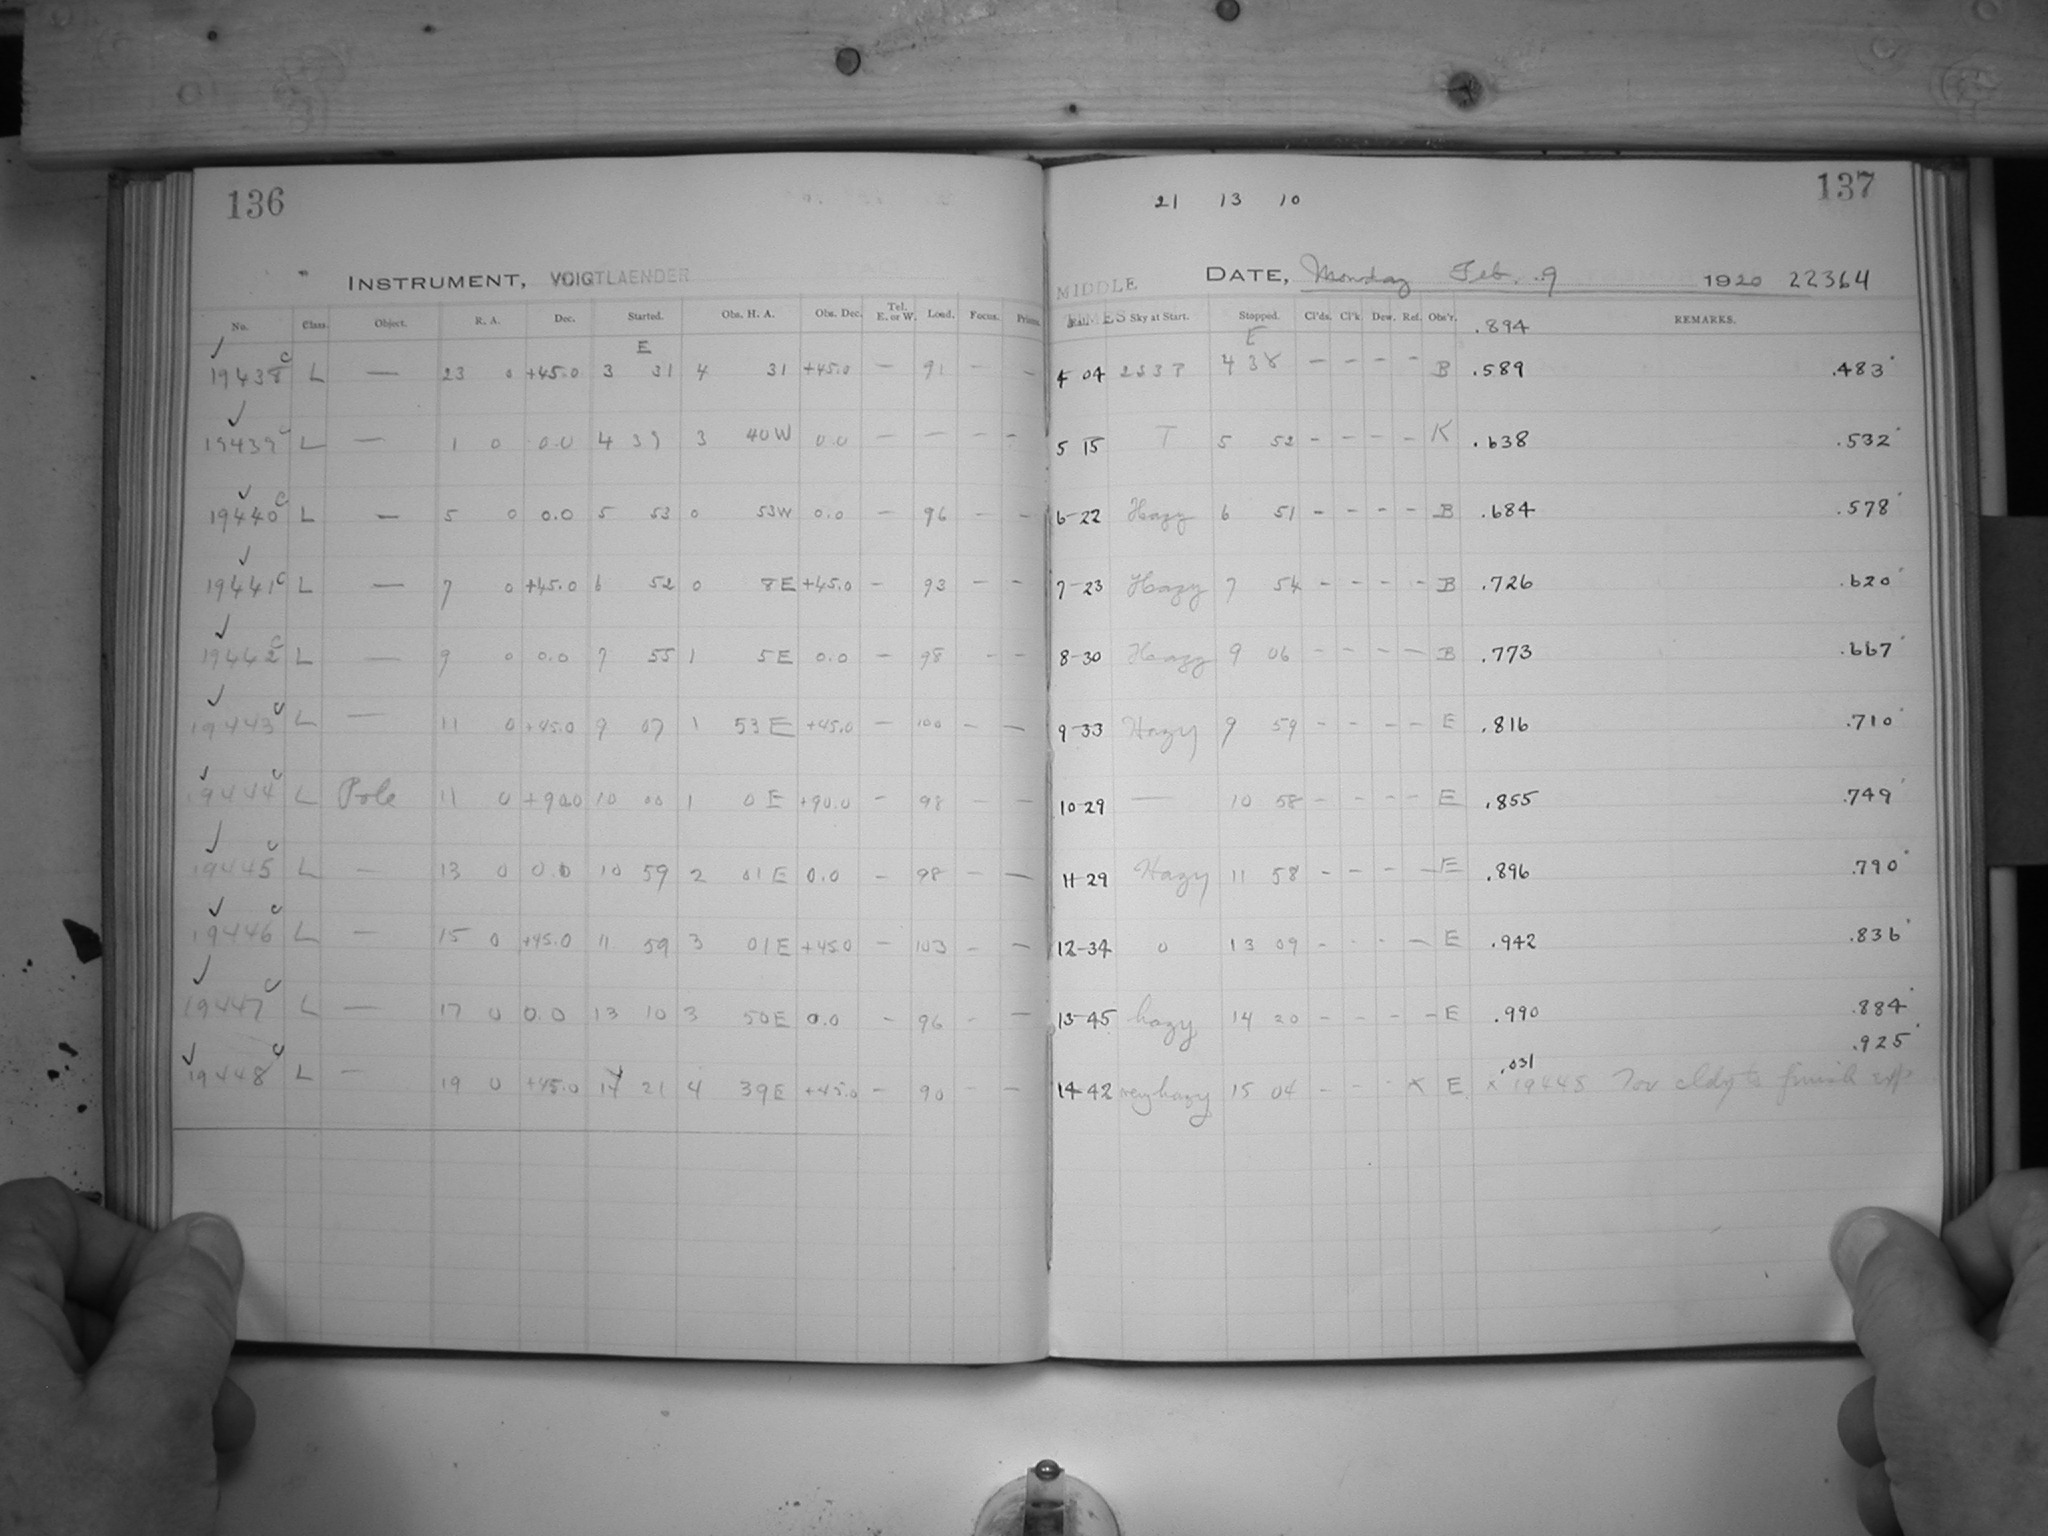 136
INSTRUMENT, VOIGTLAENDER
No. Class. Object. R. A. Dec. Started. Obs. H. A. Obs. Dec. Tel. E. or W. Load. Focus.
E
19438 c L — 23 0 +45.0 3 31 4 31 +45.0 — 91 — —
19439 c L — 1 0 0.0 4 39 3 40 W 0.0 — — — —
19440 c L — 5 0 0.0 5 53 0 53 W 0.0 — 96 — —
19441 c L — 7 0 +45.0 6 52 0 8 E +45.0 — 93 — —
19442 c L — 9 0 0.0 7 55 1 5 E 0.0 — 98 — —
19443 c L — 11 0 +45.0 9 07 1 53 E +45.0 — 100 — —
19444 c L Pole 11 0 +90.0 10 00 1 0 E +90.0 — 98 — —
19445 c L — 13 0 0.0 10 59 2 01 E 0.0 — 98 — —
19446 c L — 15 0 +45.0 11 59 3 01 E +45.0 — 103 — —
19447 c L — 17 0 0.0 13 10 3 50 E 0.0 — 96 — —
19448 c L — 19 0 +45.0 14 21 4 39 E +45.0 — 90 — —
137
21 13 10
MIDDLE TIMES
DATE, Monday Feb. 9 1920 22364
Sky at Start. Stopped. Cl'ds. Cl'k. Dew. Ref. Obs'r. .894 REMARKS.
E
4 04 4 38 — — — — B .589 .483
5 15 T 5 52 — — — — K .638 .532
6-22 Hazy 6 51 — — — — B .684 .578
7-23 Hazy 7 54 — — — — B .726 .620
8-30 Hazy 9 06 — — — — B .773 .667
9-33 Hazy 9 59 — — — — E .816 .710
10-29 — 10 58 — — — — E .855 .749
11-29 Hazy 11 58 — — — — E .896 .790
12-34 0 13 09 — — — — E .942 .836
13-45 hazy 14 20 — — — — E .990 .884
.031 .925
14-42 very hazy 15 04 — — — x E x Too cldy to finish exp.